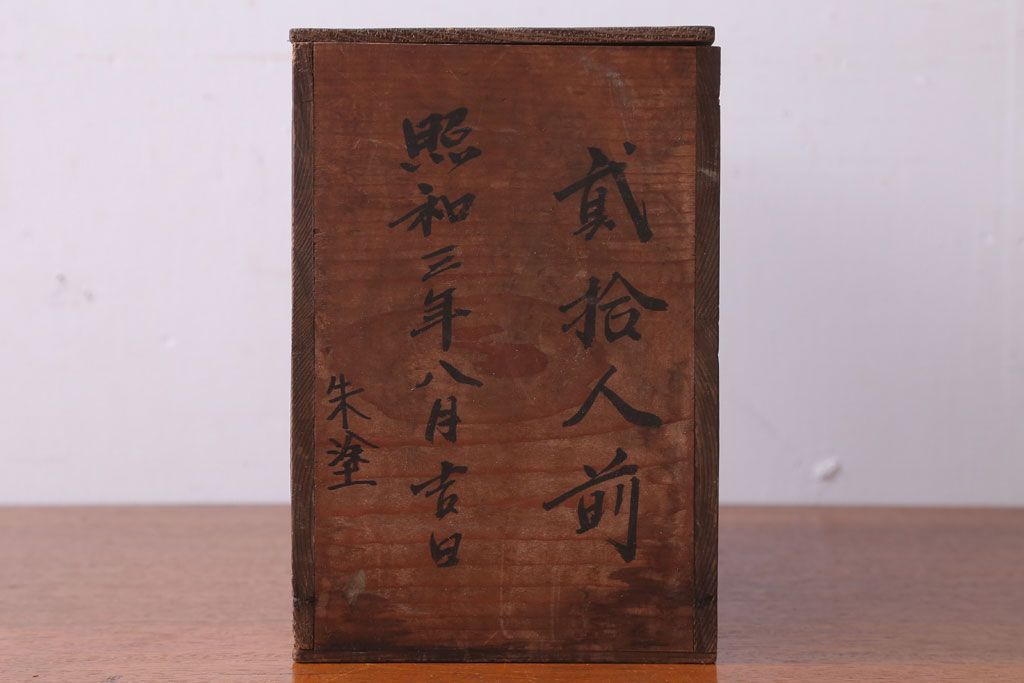 貳拾人前
昭和三年八月吉日
朱塗